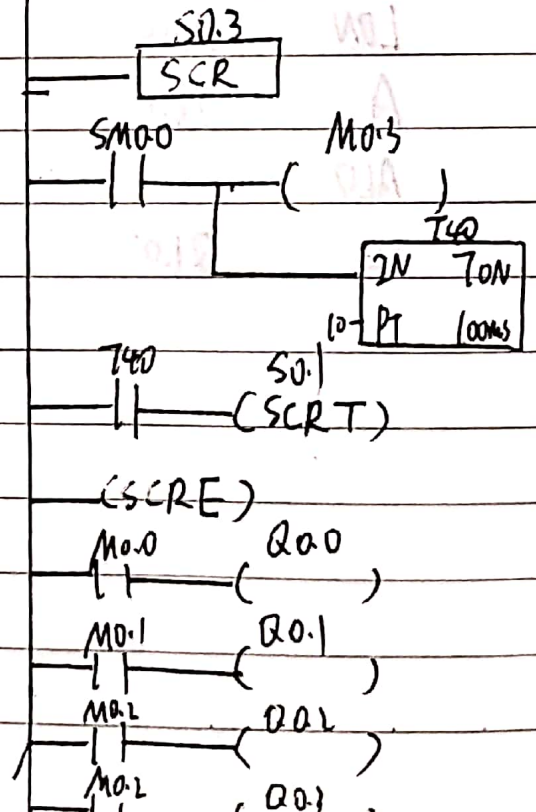 S0.3
SCR
SM0.0 M0.3
( )
T40
IN TON
10 PT 100ms
T40 S0.1
(SCRT)
(SCRE)
M0.0 Q0.0
( )
M0.1 Q0.1
( )
M0.2 Q0.2
( )
M0.2 Q0.3
(